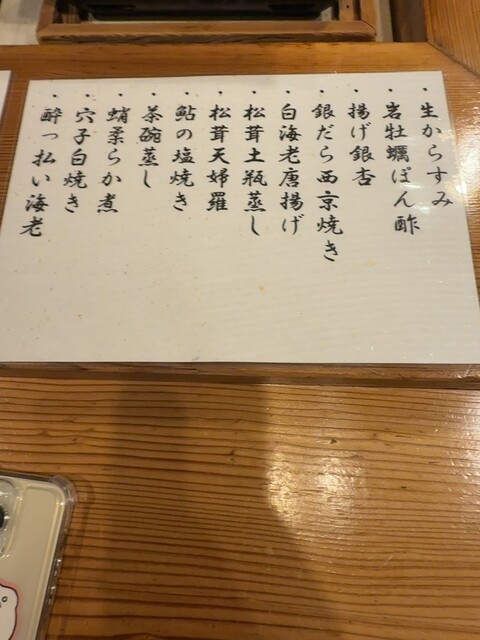 ・生からすみ
・岩牡蠣ぽん酢
・揚げ銀杏
・銀だら西京焼き
・白海老唐揚げ
・松茸土瓶蒸し
・松茸天婦羅
・鮎の塩焼き
・茶碗蒸し
・蛸柔らか煮
・穴子白焼き
・酔っ払い海老